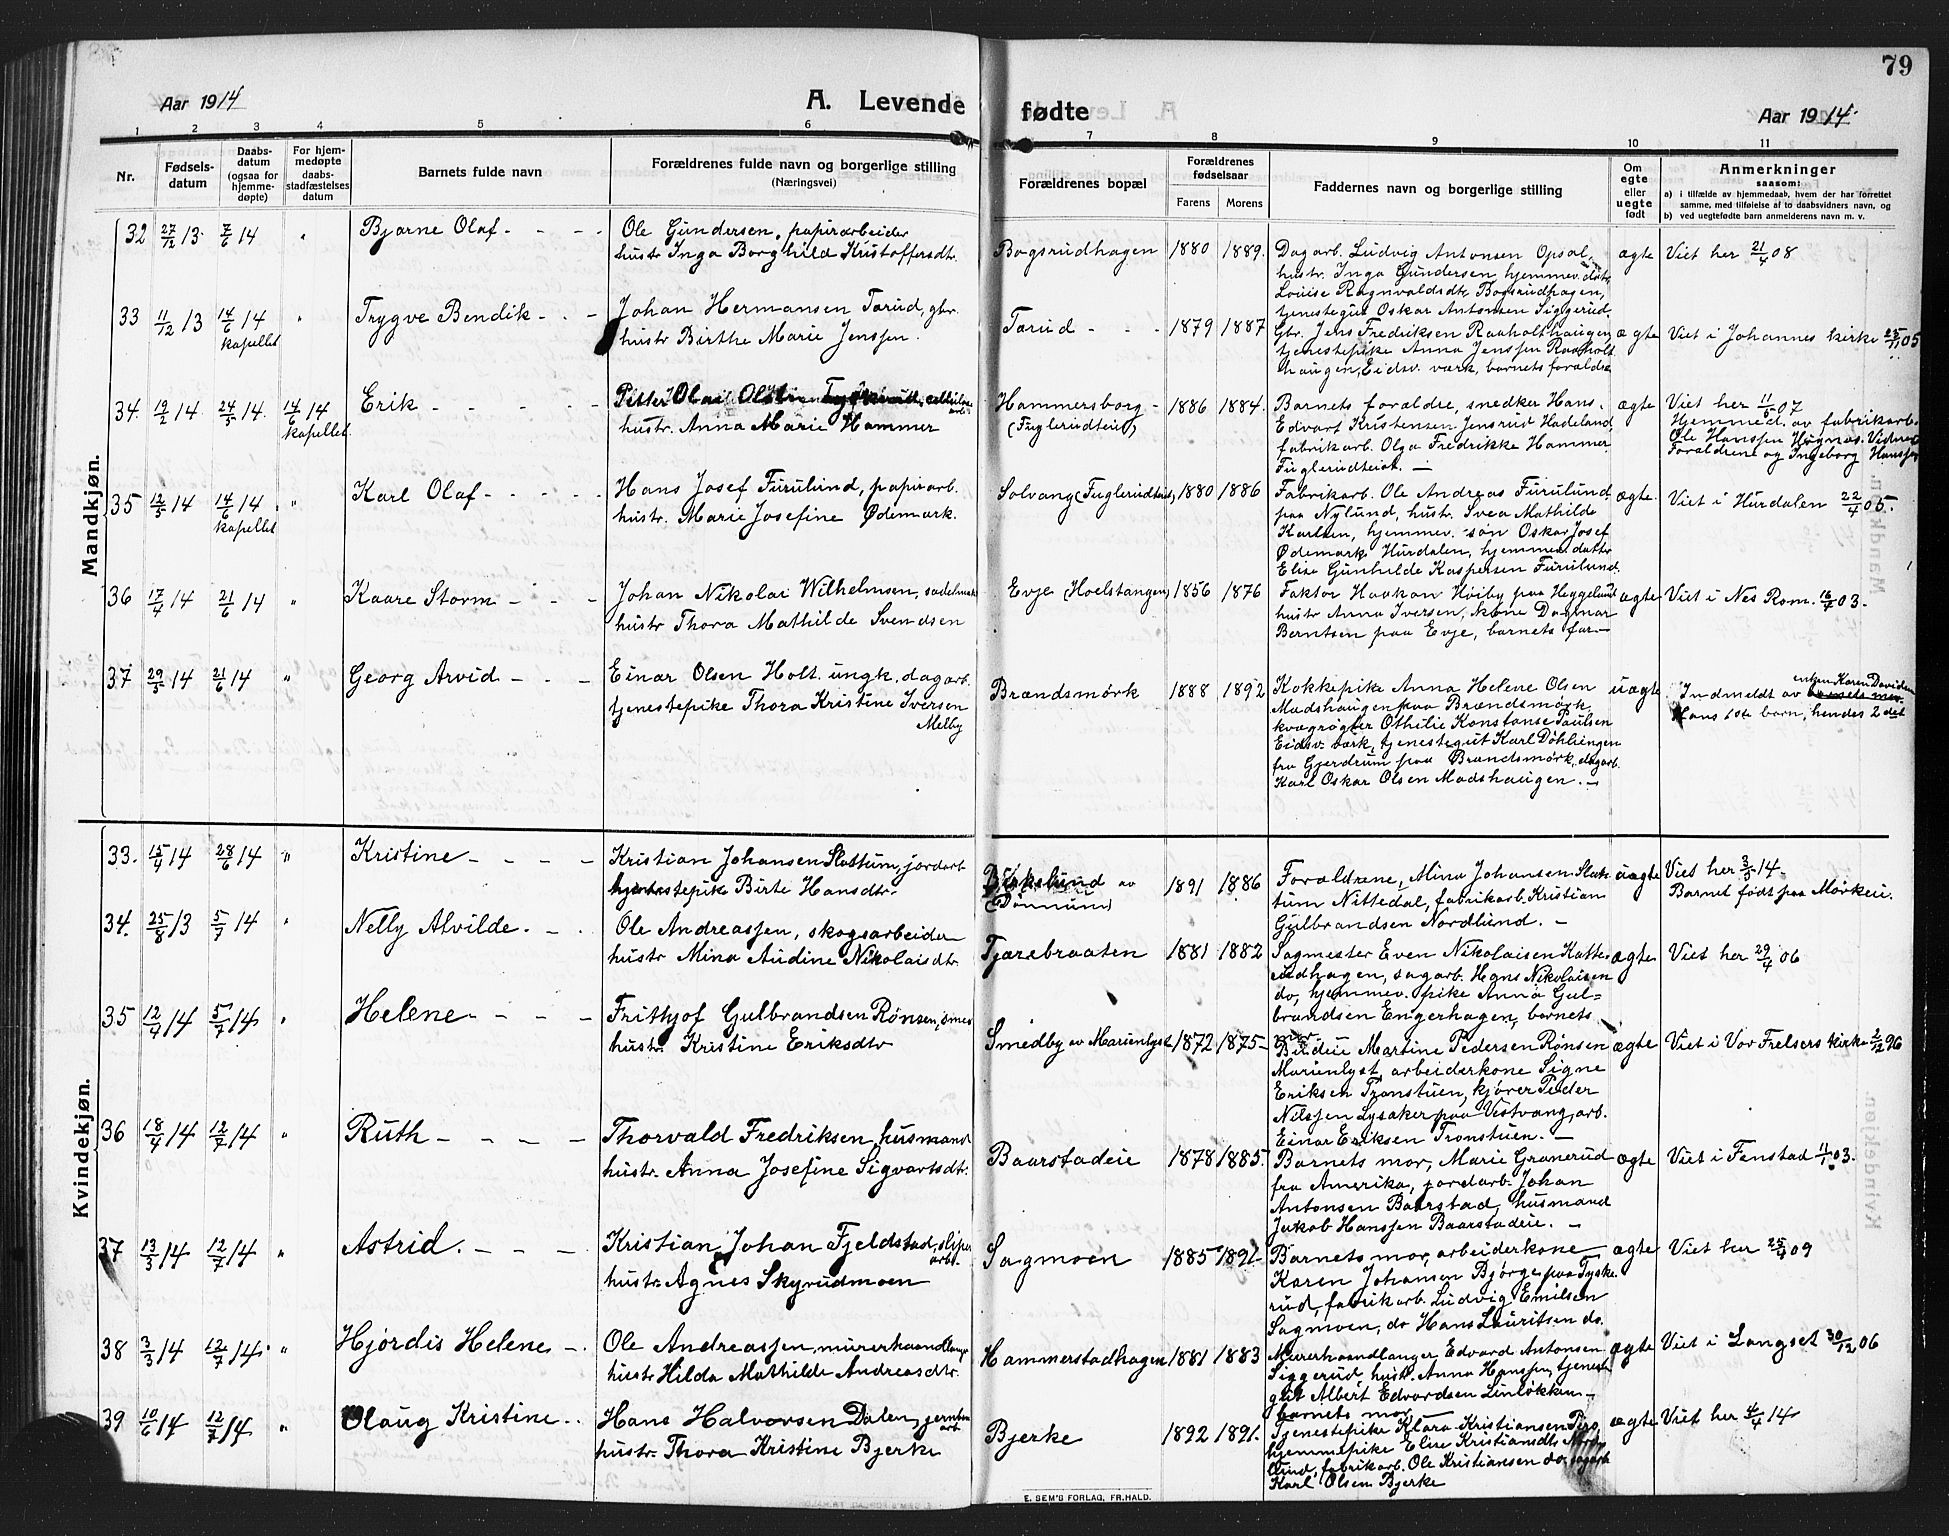 79
Aar 1914
A. Levende
fødte
Aar 1914
1 2 3 4 5 6 7 8 9 10 11
Nr.
Fødsels-
datum
Daabs-
datum
(ogsaa for
hjemme-
døpte)
For hjem-
medøpte
daabs-
stadfæstelses
datum
Barnets fulde navn
Forældrenes fulde navn og borgerlige stilling
(Næringsvei)
Forældrenes bopæl
Forældrenes
fødselsaar
Farens
Morens
Faddernes navn og borgerlige stilling
Om
egte
eller
uegte
født
Anmerkninger
saasom:
a) i tilfælde av hjemmedaab, hvem der har forrettet
samme, med tilføielse af to daabsvidners navn, og
b) ved uegtefødte barn anmelderens navn m. v.
Mandkjøn.
32 27/12 13. 7/6 14 " Bjarne Olaf - - - -
Ole Gundersen, papirarbeider
hustr. Inga Borghild Kristoffersdtr.
Bogsrudhagen 1880 1889.
Dagarb. Ludvig Antonsen Opsal,
hustr. Inga Gundersen, hjemmev. datr.
Louise Ragnvaldsdtr Bogsrudhagen,
tjenestegut Oskar Antonsen Siggerud
ægte Viet her 21/4 08
33 11/12 13 14/6 14 " Trygve Bendik - - -
kapellet
Johan Hermansen Tarud, gbr.
hustr Birthe Marie Jenssen.
Tarud - - - 1879 1887
Gbr. Jens Fredriksen Raaholthaugen,
tjenestepike Anna Jenssen Raaholt
haugen, Eidsv. værk, barnets forældre
ægte Viet i Johannes kirke 25/11 05
34. 19/2 14 24/5 14. 14/6 14 Erik - - - - -
kapellet
Petter Olai Olsen
hustr. Anna Marie Hammer
Hammersborg -
(Fuglerudteiet)
1886 1884.
Barnets forældre, snedker Hans
Edvart Kristensen Jensrud Hadeland,
fabrikarb. Olga Fredrikke Hammer
Fuglerudteiet. —
ægte Viet her 11/5 07
Hjemmed. av fabrikarb.
Ole Hanssen Høgnas. Vidner
Forældrene og Ingeborg Hanssen
35 12/3 14 14/6 14 " Karl Olaf - - - - -
kapellet
Hans Josef Furulund, papirarb.
hustr. Marie Josefine Ødemark.
Solvang (Fuglerudteiet) 1880 1886
Fabrikarb. Ole Andreas Furulund
paa Nylund, hustr. Svea Mathilde
Karlsen, hjemmev. søn Oskar Josef
Ødemark Hurdalen, hjemmev. datter
Elise Gunhilde Kaspersen Furulund.
ægte. Viet i Hurdalen 22/4 05.
36 17/4 14 21/6 14 " Kaare Storm - - -
Johan Nikolai Wilhelmsen, sadelmak
hustr Thora Mathilde Svendsen
Evje (Hoelstangen) 1856 1876
Faktor Haakon Høiby paa Heggelund
hustr Anna Iversen, kone Dagmar
Berntsen paa Evje, barnets far —
ægte Viet i Nes Rom. 16/7 03.
37 29/3 14 21/6 14 " Georg Arvid - - -
Einar Olsen Holt. ungk. dagarb.
tjenestepike Thora Kristine Iversen
Melby
Brændsmørk 1888 1892
Kokkepike Anna Helene Olsen
Madshaugen paa Brændsmørk,
kvægrøgter Othilie Konstanse Paulsen
Eidsv. værk, tjenestegut Karl Döhlingen
fra Gjerdrum paa Brændsmørk, dagarb.
Karl Oskar Olsen Madshaugen. —
uægte
enken Karen Davidsen
Indmeldt av barnets mor
Hans 1ste barn, hendes 2 det
Kvindekjøn.
33. 15/4 14 28/6 14 " Kristine - - - -
Kristian Johansen Slattum, jordarb.
tjenestepike Birte Hansdtr.
Birkelund av
(Dønnum)
1891 1886
Forældrene, Mina Johansen Slat-
tum Nittedal, fabrikarb. Kristian
Gulbrandsen Nordlund. —
uægte Viet her 3/5 14.
Barnet født paa Mørkeie.
34. 25/8 13 5/7 14 " Nelly Alvilde. - -
Ole Andreassen, skogsarbeider
hustr Mina Audine Nikolaisdtr.
Tjærebraaten 1881 1882
Sagmester Even Nikolaisen Katte-
rudhagen, sagarb. Hans Nikolaisen
do, hjemmev. pike Anna Gul-
brandsen Engerhagen, barnets
mor
ægte Viet her 29/4 06
35 12/4 14 5/7 14 " Helene - - - -
Frithjof Gulbrandsen Rønsen, smed
hustr. Kristine Eriksdtr
Smedby av Marienlyst 1872 1875
Budeie Martine Pedersen Rønsen
Marienlyst, arbeiderkone Signe
Eriksen Tronstuen, kjører Peder
Nilssen Lysaker paa Vestvang, arb.
Einar Eriksen Tronstuen. —
ægte Viet i Vor Frelsers kirke 2/12 96
36 18/4 14 12/7 14 " Ruth - - - -
Thorvald Fredriksen, husmand
hustr. Anna Josefine Sigvartsdtr.
Baarstadeie 1878 1885.
Barnets mor, Marie Granerud
fra Amerika, jordarb. Johan
Antonsen Baarstad, husmand
Jakob Hanssen Baarstadeie. —
ægte Viet i Fenstad 11/1 03.
37 13/3 14 12/7 14 " Astrid. - - -
Kristian Johan Fjeldstad, sliper
arb.
hustr. Agnes Skyrudmoen
Sagmoen 1885 1891
Barnets mor, arbeiderkone
Karen Johansen Bjørge paa Tyske-
rud, fabrikarb. Ludvig Emilsen
Sagmoen, do Hans Lauritsen do.
ægte Viet her 25/4 09
38 3/3 14 12/7 14. " Hjørdis Helene - -
Ole Andreassen, murerhaandlanger
hustr Hilda Mathilde Andreasdtr.
Hammerstadhagen 1881 1883
Murerhaandlanger Edvard Antonsen
Siggerud, hustr. Anna Hanssen, tjeneste
gut Albert Edvardsen Linløkken -
barnets mor
ægte Viet i Langset 30/12 06
39 10/6 14 12/7 14 " Olaug Kristine - -
Hans Halvorsen Dalen, jernban
arb.
hustr. Thora Kristine Bjerke
Bjerke 1892 1891.
Tjenestepike Klara Kristiansen
hjemmepike Elise Kristiansdtr
fabrikarb. Ole Kristiansen do. sagarb
Karl Olsen Bjerke
ægte Viet her 4/4 14
E. SEM'S FORLAG, FR.HALD.